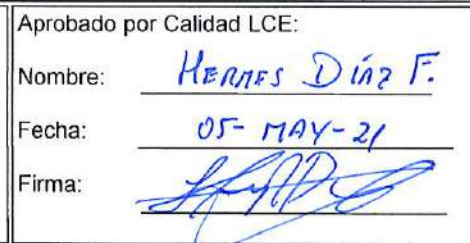 Aprobado por Calidad LCE:
Nombre: HERMES DÍAZ F.
Fecha: 05-MAY-21
Firma: